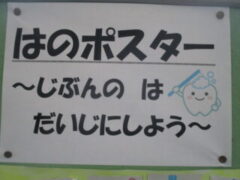 はのポスター
～じぶんの は
だいじにしよう～